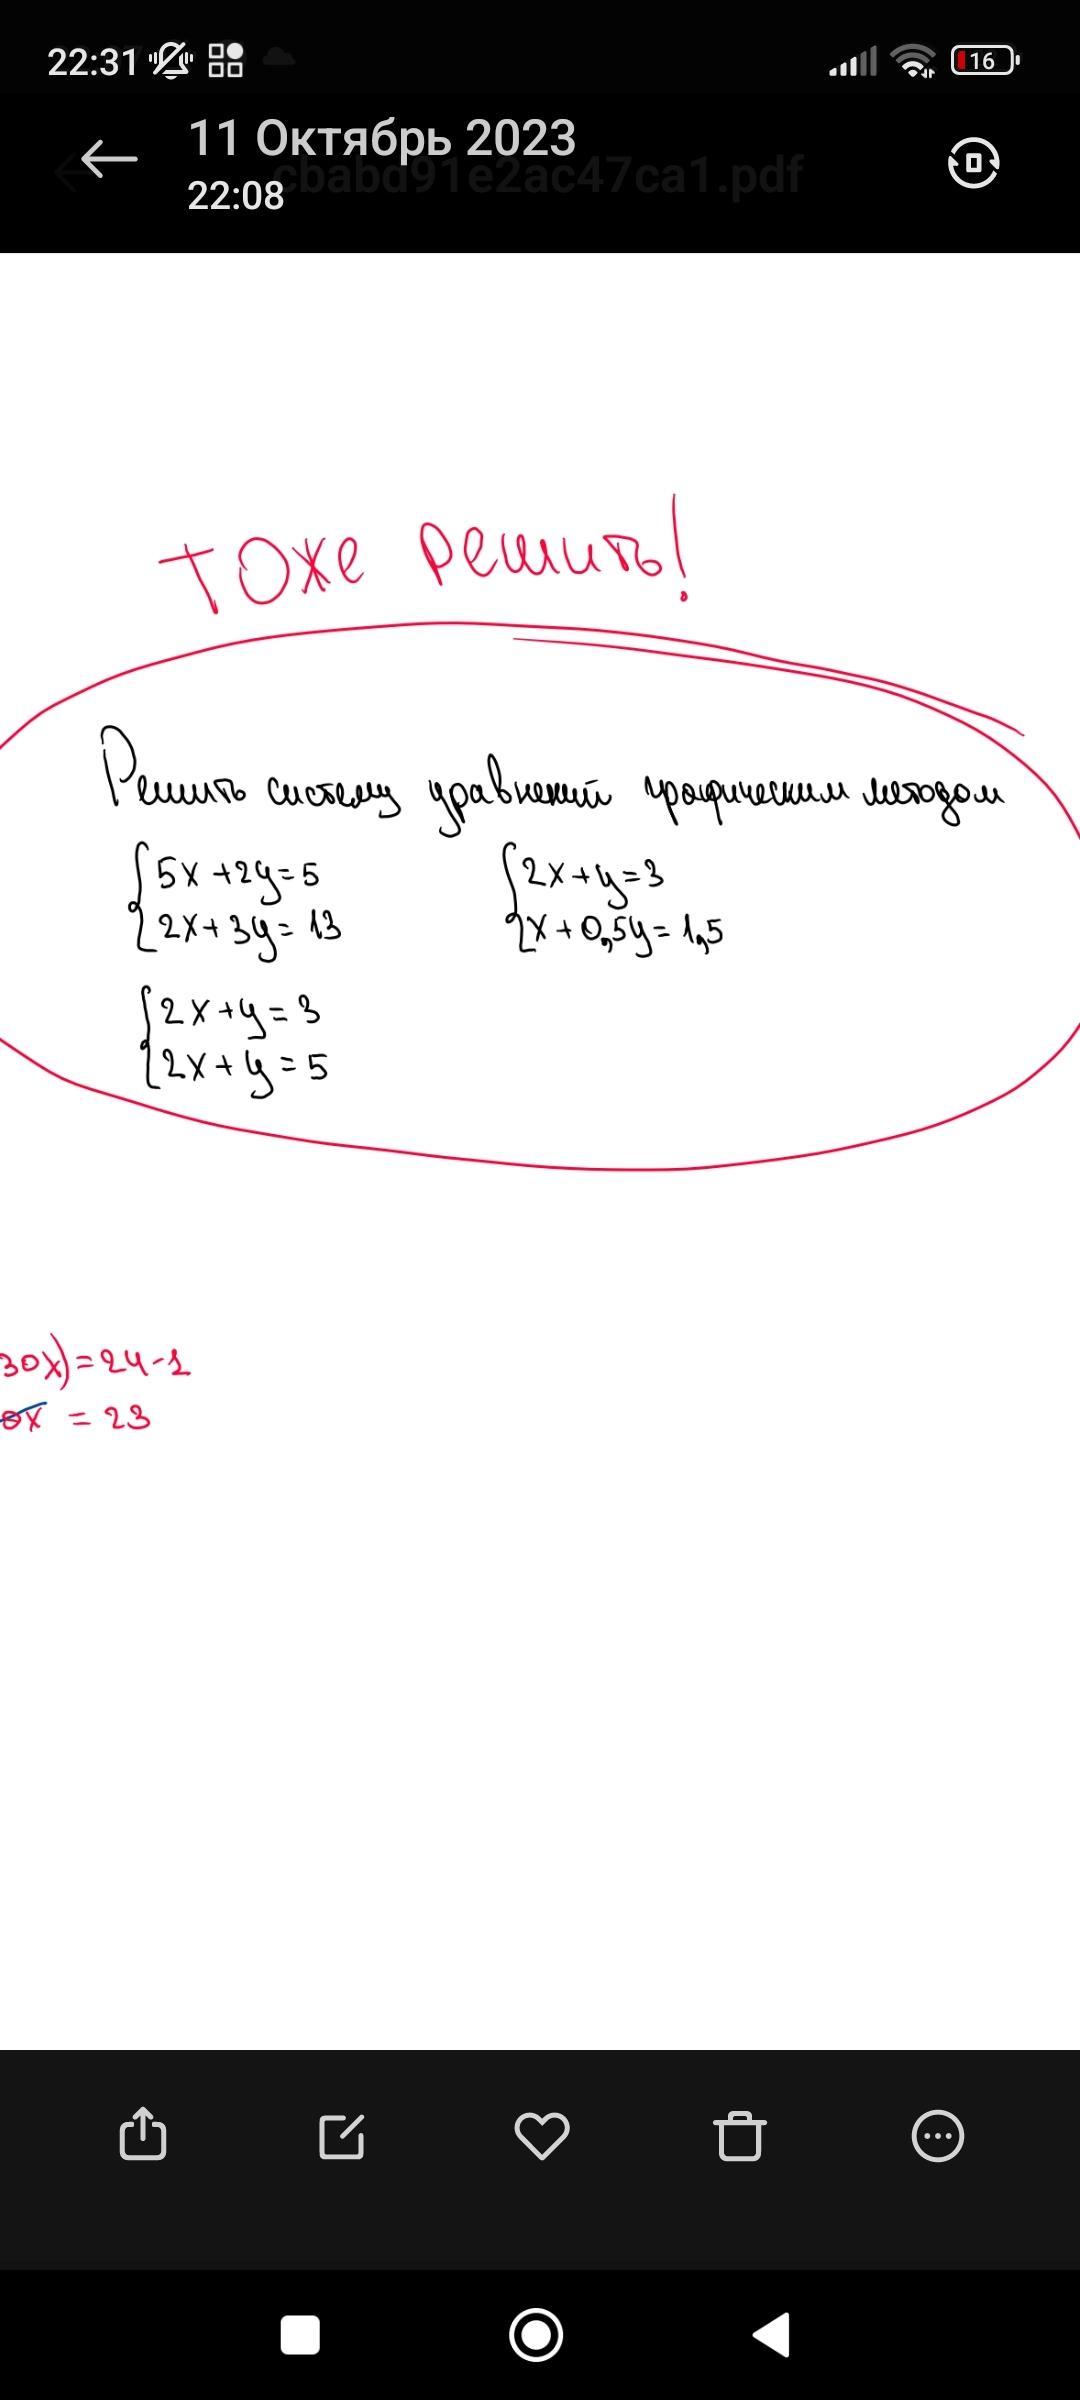 22:31
16
11 Октябрь 2023
cbabd91e2ac47ca1.pdf
22:08
тоже решить!
Решить систему уравнений графическим методом
5x+2y=5
2x+3y=13
2x+y=3
2x+0,5y=1,5
2x+y=3
2x+y=5
30x)=24-1
0x = 23